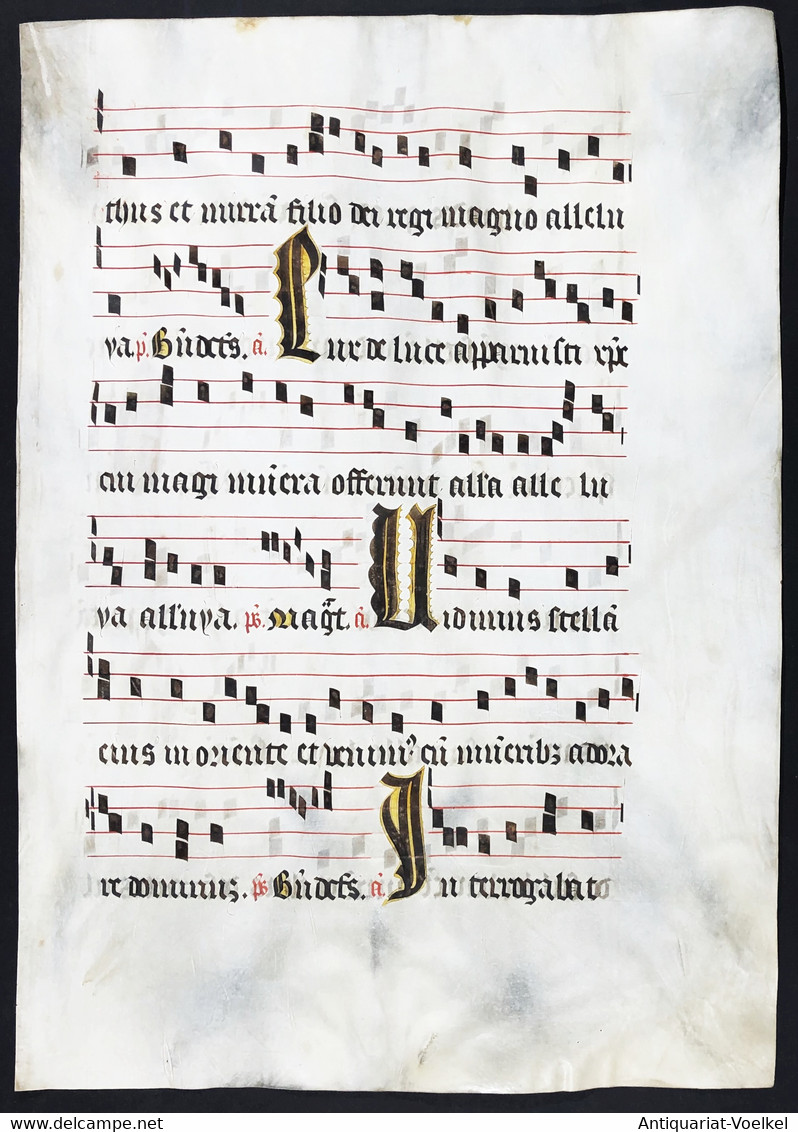 thus et mirrā filio dei regi magno allelu
ya. p̄. Bn̄dct̄s. ā. Lux de luce apparuisti xp̄e
cui magi mūera offerunt all'a alle lu
ya all'uya. ps̄. Magt̄. ā. Uidimus stellā
eius in oriēnte et venimꝰ cū mūeribꝫ adora
re dominuꝫ. ps̄ Bn̄dct̄s. ā. In terrogabat
www.delcampe.net
Antiquariat-Voelkel